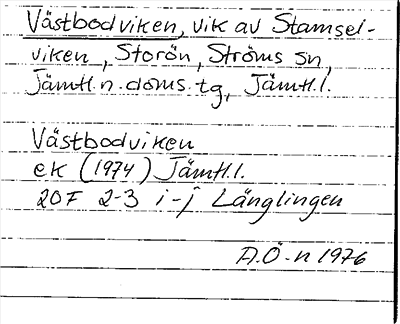 Västbodviken, vik av Stamsel-
viken, Storön, Ströms sn,
Jämtl.n.doms.tg, Jämtl.l.
Västbodviken
ek (1974) Jämtl.l.
20F 2-3 i-j Länglingen
A.Ö-n 1976